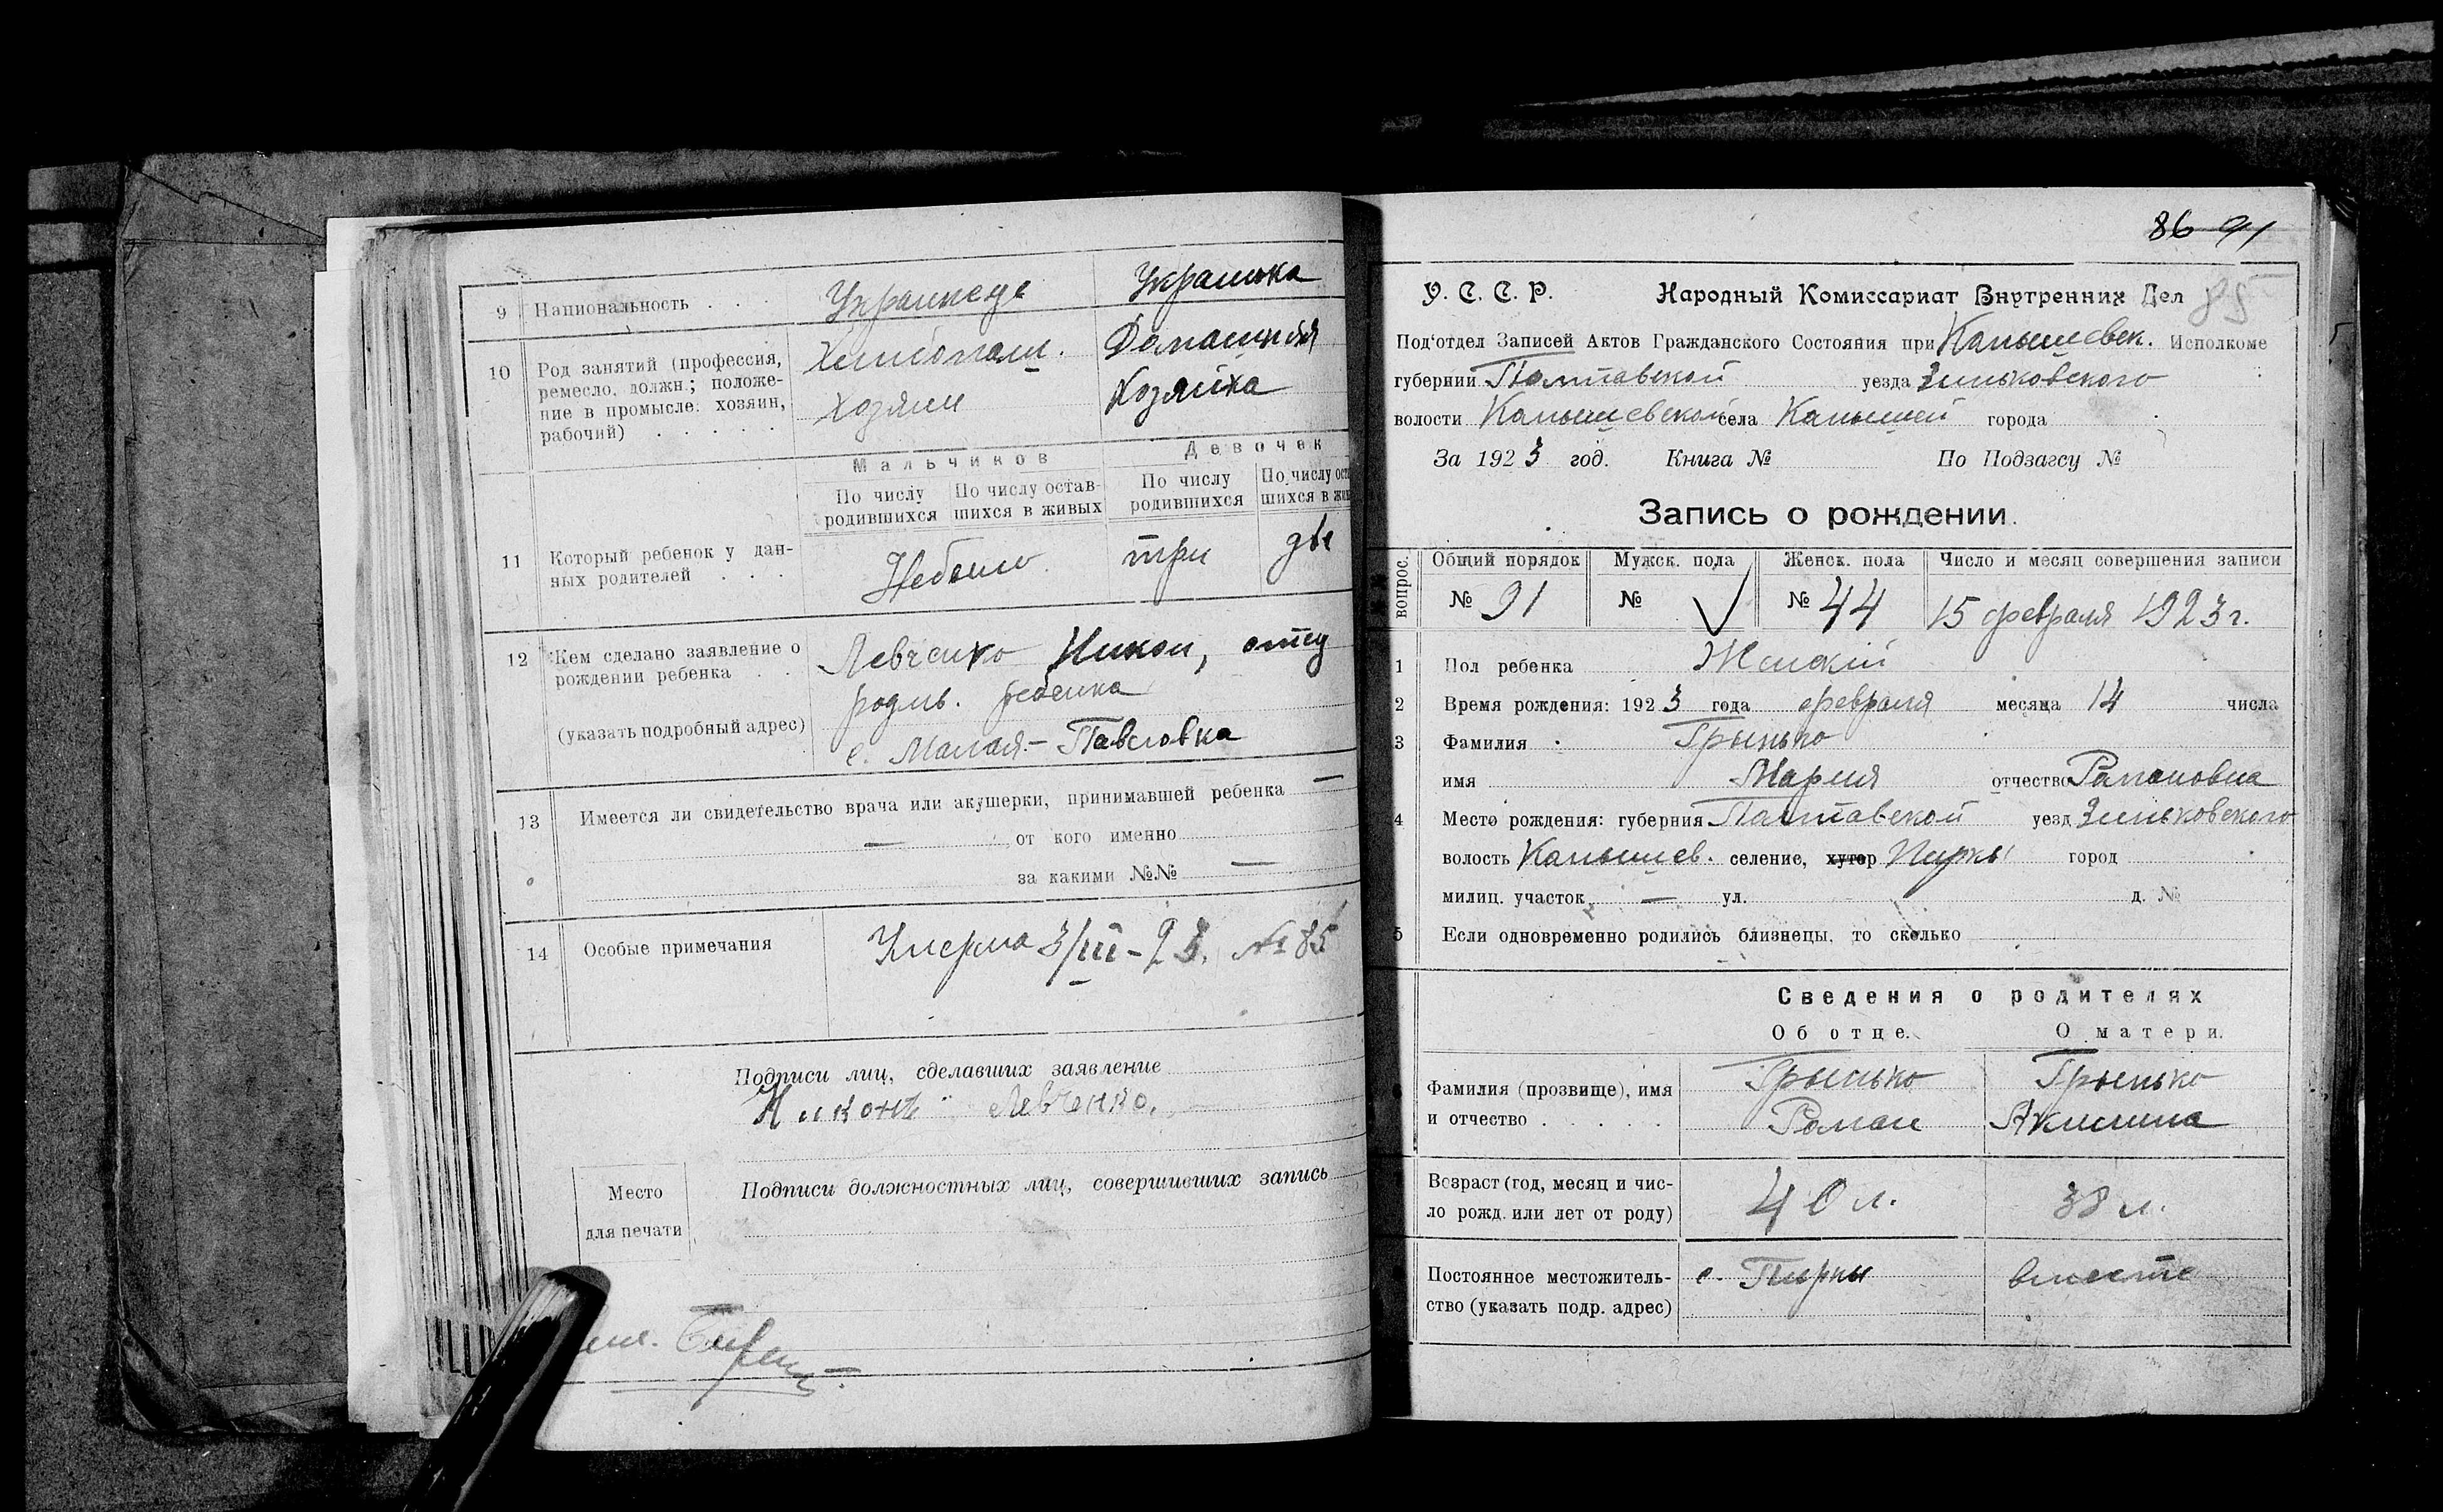 9 Национальность . . . Украинец Украинка
10 Род занятий (профессия, ремесло, должн.; положение в промысле: хозяин, рабочий) . . . . .
Хлебопаш. Домашняя
хозяин Хозяйка
Мальчиков Девочек
По числу родившихся По числу оставшихся в живых По числу родившихся По числу
11 Который ребенок у данных родителей . . .
Небыло три две
12 Кем сделано заявление о рождении ребенка . .
(указать подробный адрес)
Левченко Никон, отец
родив. ребенка
с. Малая-Павловка
13 Имеется ли свидетельство врача или акушерки, принимавшей ребенка —
— от кого именно
за какими №№ —
14 Особые примечания Умерла 3/III-23. № 85
Подписи лиц, сделавших заявление
Никонъ Левченко.
Место
для печати
Подписи должностных лиц, совершивших запись
86 91
У. С. С. Р. Народный Комиссариат Внутренних Дел 85
Под'отдел Записей Актов Гражданского Состояния при Камышевск. Исполкоме
губернии Полтавской уезда Зиньковского
волости Камышевской села Камышей города
За 1923 год. Книга № По Подзагсу №
Запись о рождении.
вопрос. Общий порядок Мужск. пола Женск. пола Число и месяц совершения записи
№ 91 № № 44 15 февраля 1923 г.
1 Пол ребенка Женский
2 Время рождения: 1923 года февраля месяца 14 числа
3 Фамилия Грынько
имя Мария отчество Романовна
4 Место рождения: губерния Полтавской уезд Зиньковского
волость Камышев. селение, хутор Пирки город
милиц. участок — ул. д. №
5 Если одновременно родились близнецы, то сколько
Сведения о родителях
Об отце. О матери.
Фамилия (прозвище), имя Грынько Грынько
и отчество . . . . . Роман Акилина
Возраст (год, месяц и чис-
ло рожд. или лет от роду) 40 л. 38 л.
Постоянное местожитель- с. Пирки вместе
ство (указать подр. адрес)